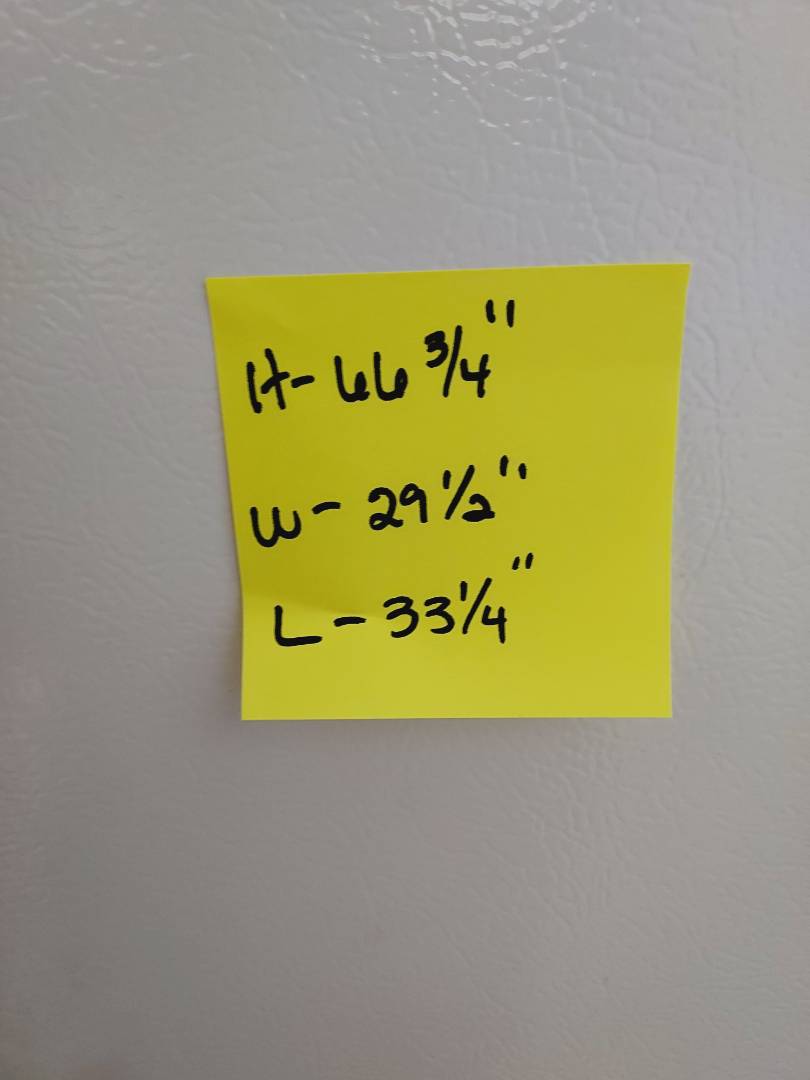 H- 66 3/4"
W- 29 1/2"
L- 33 1/4"